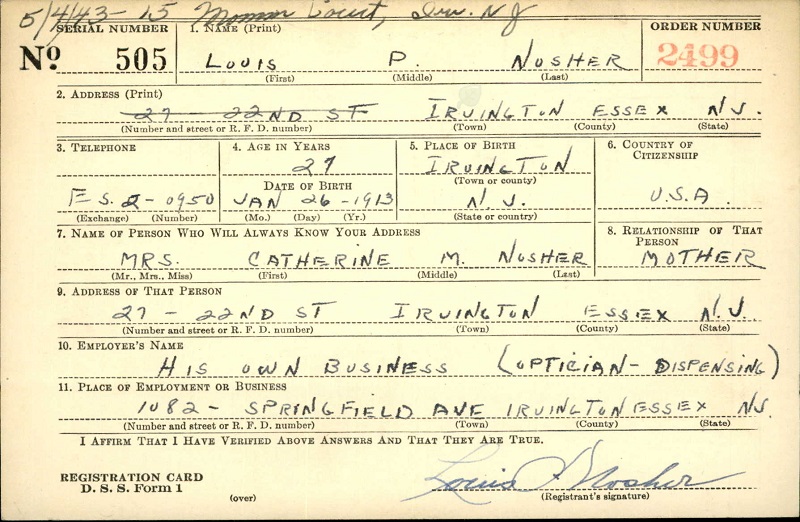 5/4/43 - 15 Court, Irv. N J
SERIAL NUMBER 1. NAME (Print) ORDER NUMBER
No 505 LOUIS P. NOSHER 2499
(First) (Middle) (Last)
2. ADDRESS (Print)
27 - 22ND ST IRVINGTON ESSEX N.J.
(Number and street or R. F. D. number) (Town) (County) (State)
3. TELEPHONE 4. AGE IN YEARS 5. PLACE OF BIRTH 6. COUNTRY OF CITIZENSHIP
27 IRVINGTON
DATE OF BIRTH (Town or county)
ES. 2-0950 JAN 26-1913 N.J. U.S.A.
(Exchange) (Number) (Mo.) (Day) (Yr.) (State or country)
7. NAME OF PERSON WHO WILL ALWAYS KNOW YOUR ADDRESS 8. RELATIONSHIP OF THAT PERSON
MRS. CATHERINE M. NOSHER MOTHER
(Mr., Mrs., Miss) (First) (Middle) (Last)
9. ADDRESS OF THAT PERSON
27 - 22ND ST IRVINGTON ESSEX N.J.
(Number and street or R. F. D. number) (Town) (County) (State)
10. EMPLOYER'S NAME
HIS OWN BUSINESS (OPTICIAN - DISPENSING)
11. PLACE OF EMPLOYMENT OR BUSINESS
1082 - SPRINGFIELD AVE IRVINGTON ESSEX NJ.
(Number and street or R. F. D. number) (Town) (County) (State)
I AFFIRM THAT I HAVE VERIFIED ABOVE ANSWERS AND THAT THEY ARE TRUE.
REGISTRATION CARD Louis P Nosher
D. S. S. Form 1 (over) (Registrant's signature)